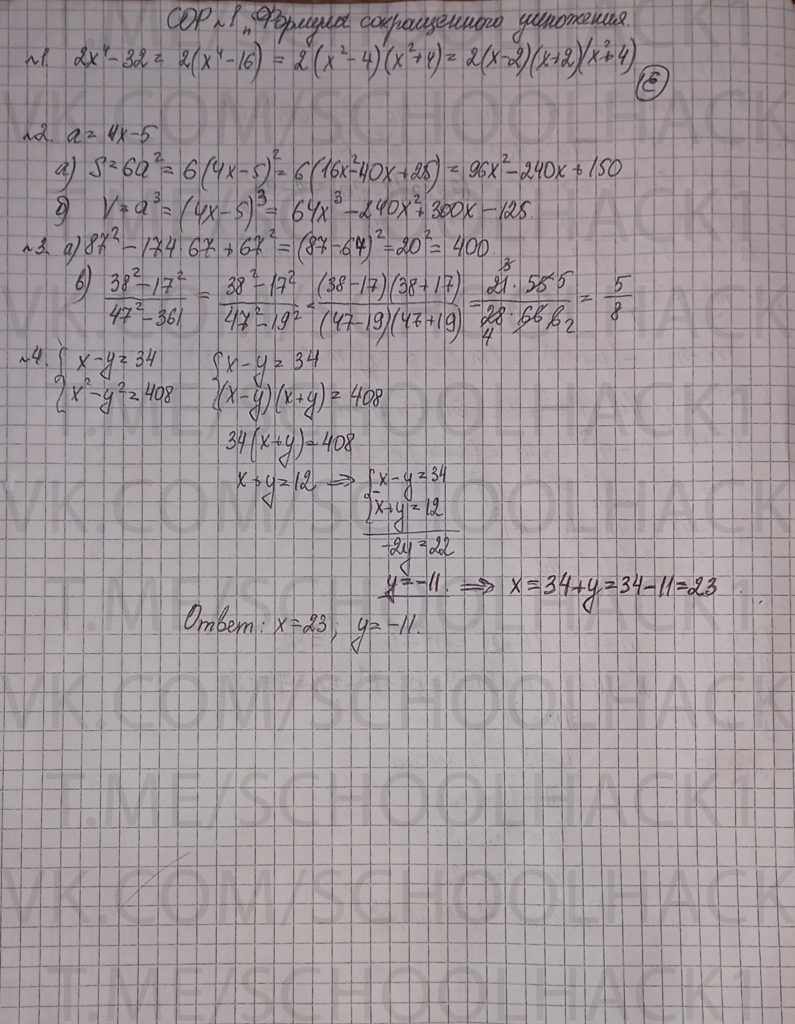 СОР №1 „Формула сокращенного умножения
№1. 2x⁴ - 32 = 2(x⁴ - 16) = 2(x² - 4)(x² + 4) = 2(x - 2)(x + 2)(x² + 4)
Ⓔ
№2. a = 4x - 5
а) S = 6a² = 6(4x - 5)² = 6(16x² - 40x + 25) = 96x² - 240x + 150
б) V = a³ = (4x - 5)³ = 64x³ - 240x² + 300x - 125
№3. а) 87² - 174 67 + 67² = (87 - 67)² = 20² = 400
в) (38² - 17²)/(47² - 361) = (38² - 17²)/(47² - 19²) = ((38 - 17)(38 + 17))/((47 - 19)(47 + 19)) = (21 3 · 55 5)/(28 4 · 66 6 2) = 5/8
№4. { x - y = 34 { x - y = 34
{ x² - y² = 408 { (x - y)(x + y) = 408
34(x + y) = 408
x + y = 12 ⇒ { x - y = 34
- { x + y = 12
-2y = 22
y = -11. ⇒ x = 34 + y = 34 - 11 = 23
Ответ: x = 23; y = -11.
VK.COM/SCHOOLHACK
T.ME/SCHOOLHACK1
VK.COM/SCHOOLHACK
T.ME/SCHOOLHACK1
VK.COM/SCHOOLHACK
T.ME/SCHOOLHACK1
VK.COM/SCHOOLHACK
T.ME/SCHOOLHACK1
VK.COM/SCHOOLHACK
T.ME/SCHOOLHACK1